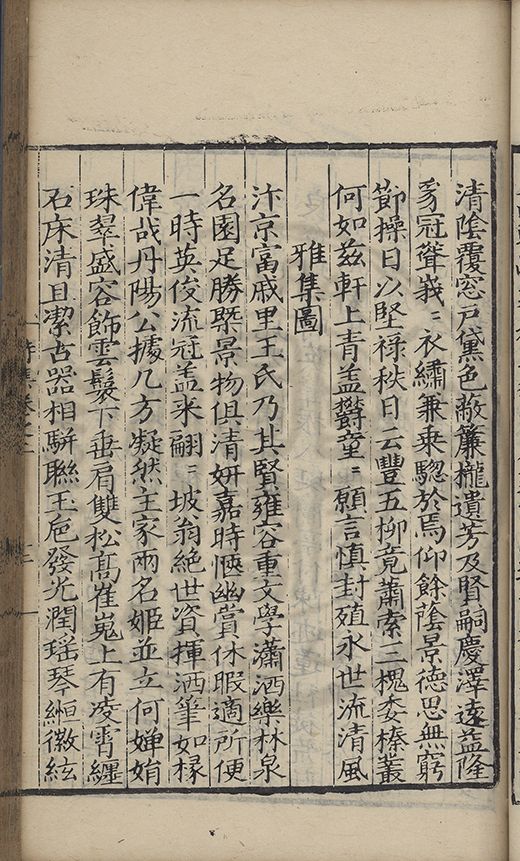 清陰覆窓戸黛色蔽簾櫳遺芳及賢嗣慶澤遠益隆
豸冠聳峩〻衣繡兼乗驄於焉仰餘蔭景德思無窮
節操日以堅禄秩日云豐五柳竟蕭索三槐委榛叢
何如兹軒上青盖欝童〻願言慎封殖永世流清風
雅集圖
汴京富戚里王氏乃其賢雍容重文學瀟洒樂林泉
名園足勝槩景物俱清妍嘉時愜幽賞休暇適所便
一時英俊流冠盖来翩〻坡翁絶世資揮洒筆如椽
偉哉丹陽公據几方凝然主家兩名姬並立何嬋娟
珠翠盛容飾雲鬟下垂肩雙松髙崔嵬上有凌霄纏
石床清且潔古器相駢聯玉卮發光潤瑶琴緪徽絃